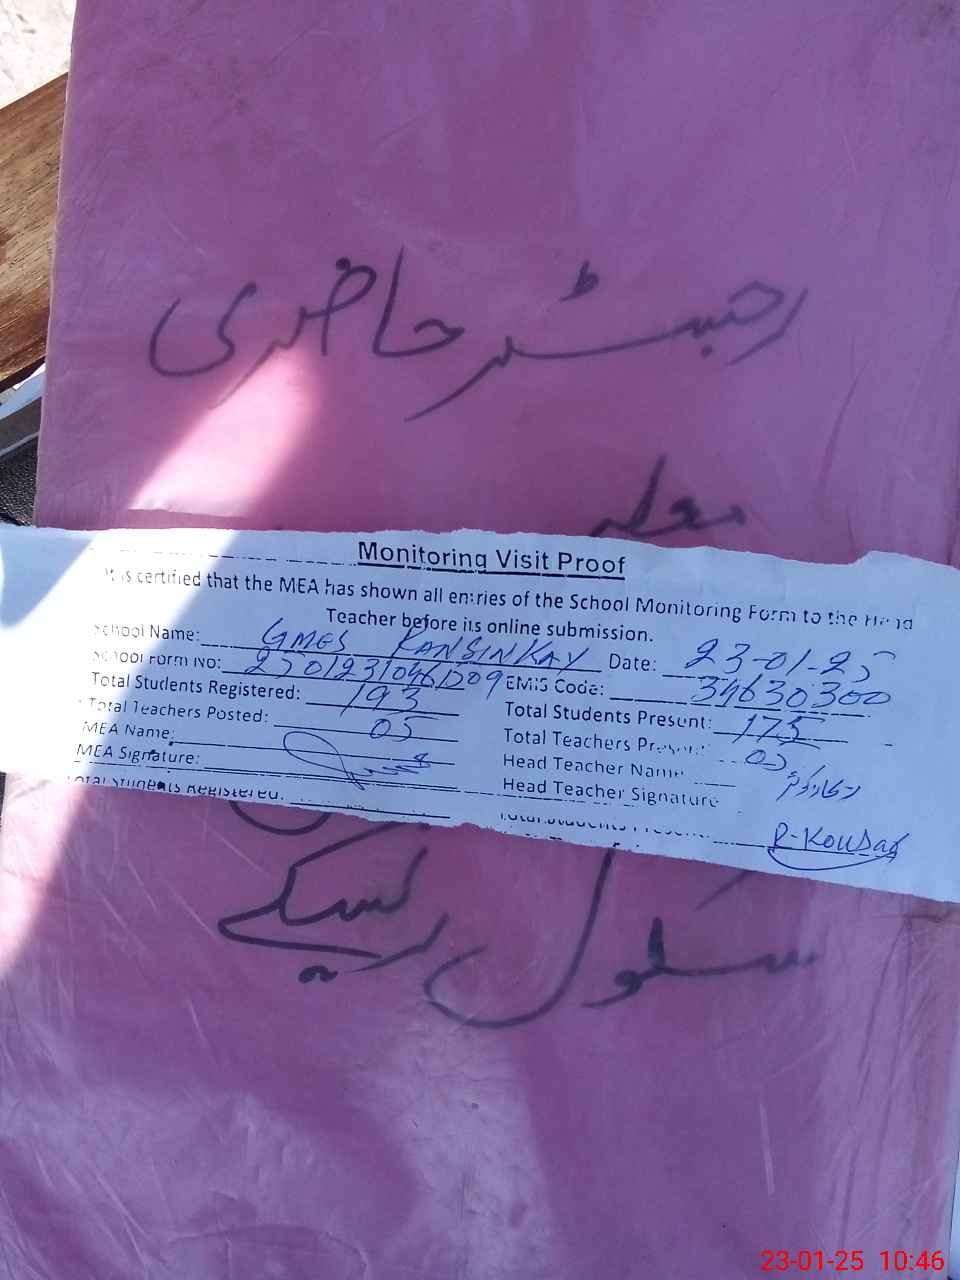 رجسٹر حاضری
معلمہ
Monitoring Visit Proof
It is certified that the MEA has shown all entries of the School Monitoring Form to the Head
Teacher before its online submission.
School Name: GMES RANSINKAY Date: 23-01-25
School Form No: EMIS Code: 34630300
Total Students Registered: 193 Total Students Present: 175
Total Teachers Posted: 05 Total Teachers Present: 05
MEA Name: Head Teacher Name
MEA Signature: Head Teacher Signature R-Kousar
Total Students Registered: Total Students Present:
سکول رنسیکے
23-01-25 10:46